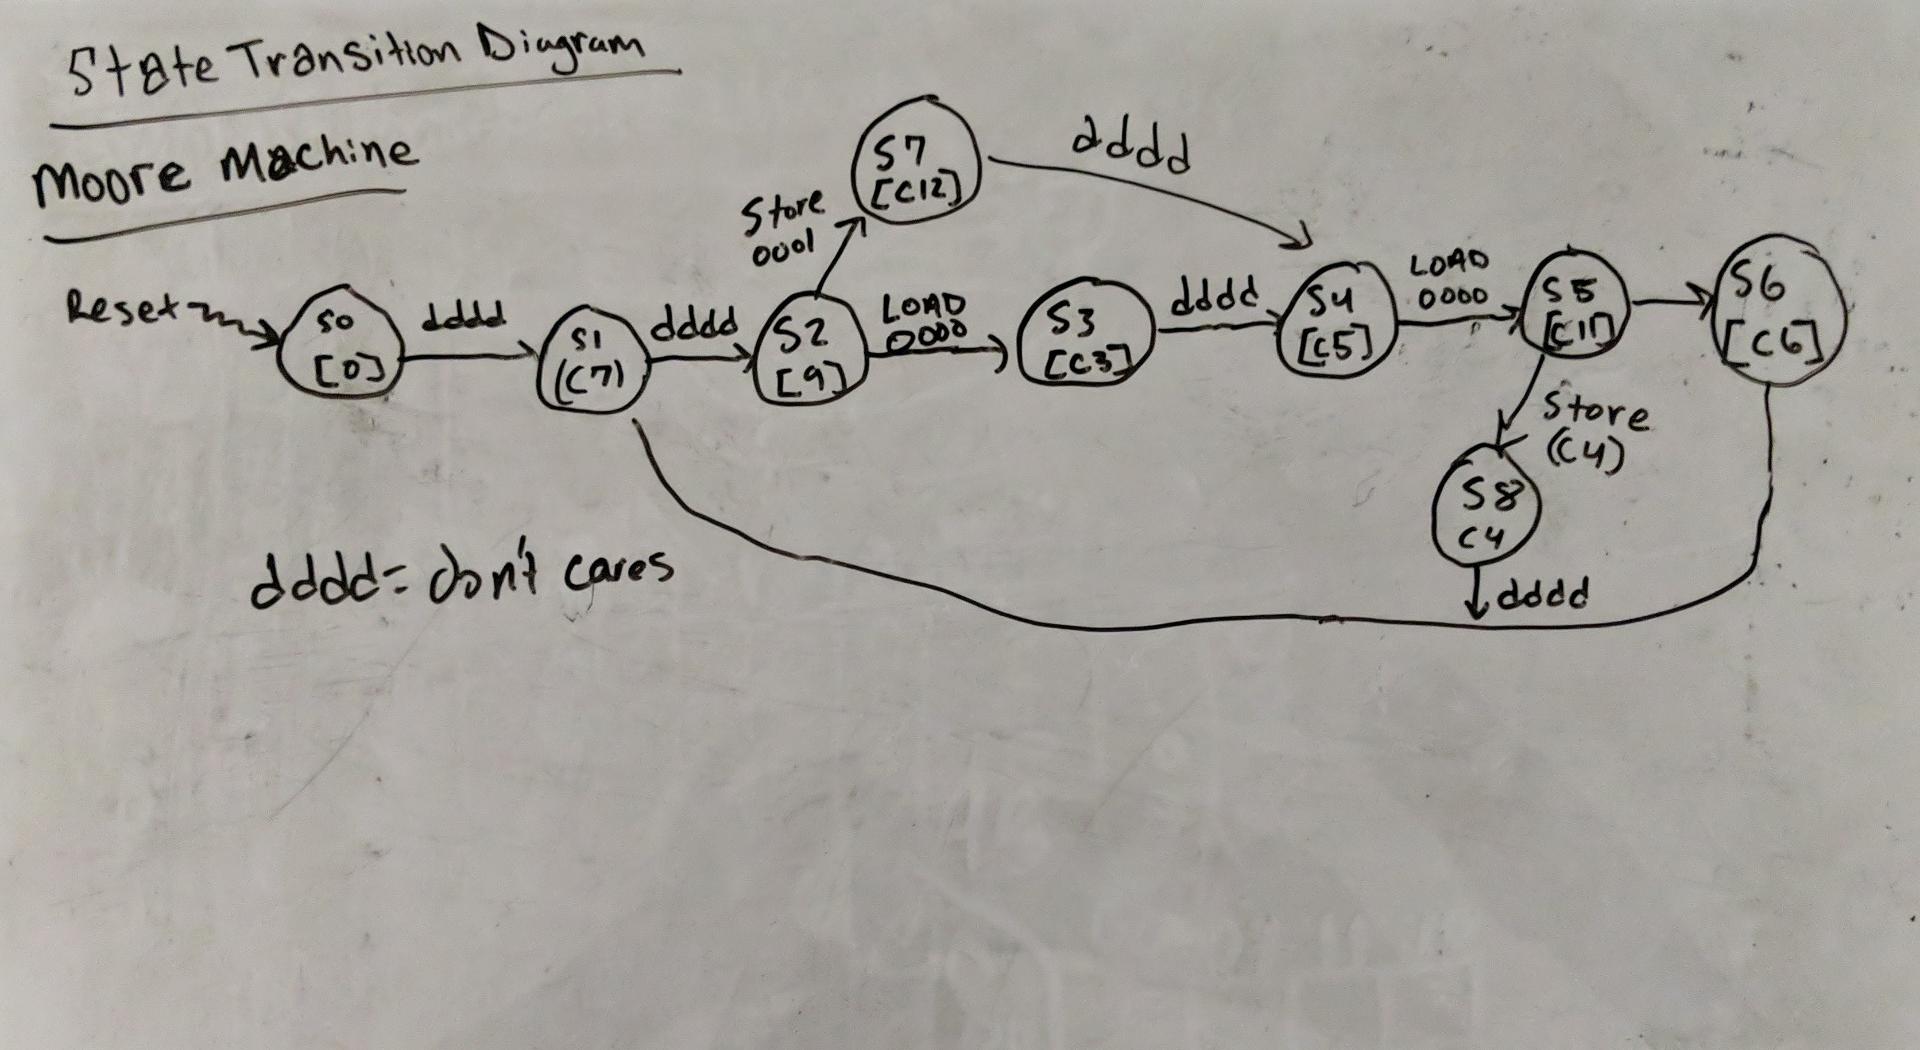 State Transition Diagram
Moore Machine
S7
[C12]
dddd
Store
0001
Reset
S0
[0]
dddd
S1
(C7)
dddd
S2
[9]
LOAD
0000
S3
[C3]
dddd
S4
[C5]
LOAD
0000
S5
[C11]
S6
[C6]
Store
(C4)
S8
C4
dddd
dddd = don't cares